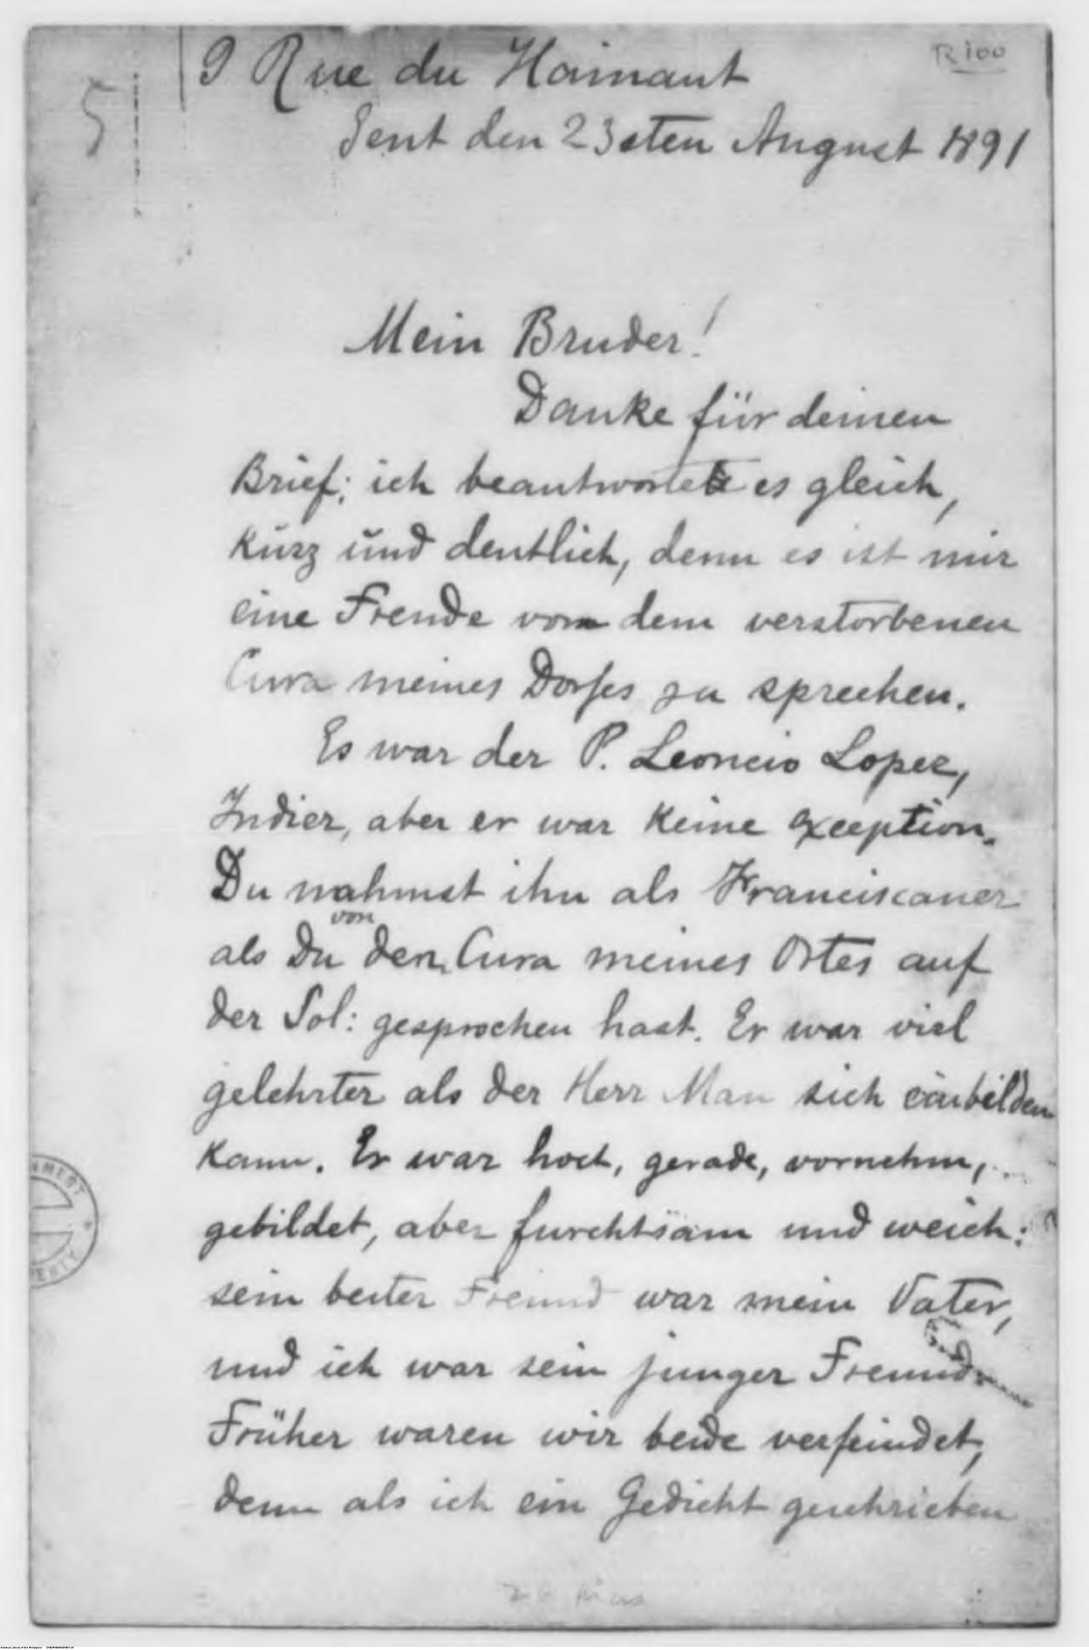 R 100
9 Rue du Hainaut
Gent den 23sten August 1891
5
Mein Bruder!
Danke für deinen
Brief; ich beantworte es gleich,
kurz und deutlich, denn es ist mir
eine Freude von dem verstorbenen
Cura meines Dorfes zu sprechen.
Es war der P. Leoncio Lopez,
Indier, aber er war keine exception.
Du nahmst ihn als Franciscaner
als Du von den Cura meines Ortes auf
der Sol: gesprochen hast. Er war viel
gelehrter als der Herr Man sich einbilden
kann. Er war hoch, gerade, vornehm,
gebildet, aber furchtsam und weich:
sein bester Freund war mein Vater,
und ich war sein junger Freund.
Früher waren wir beide verfeindet,
denn als ich ein Gedicht geschrieben